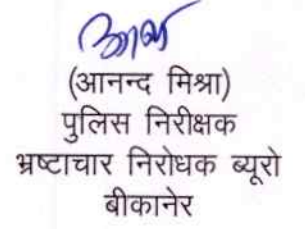 (आनन्द मिश्रा)
पुलिस निरीक्षक
भ्रष्टाचार निरोधक ब्यूरो
बीकानेर